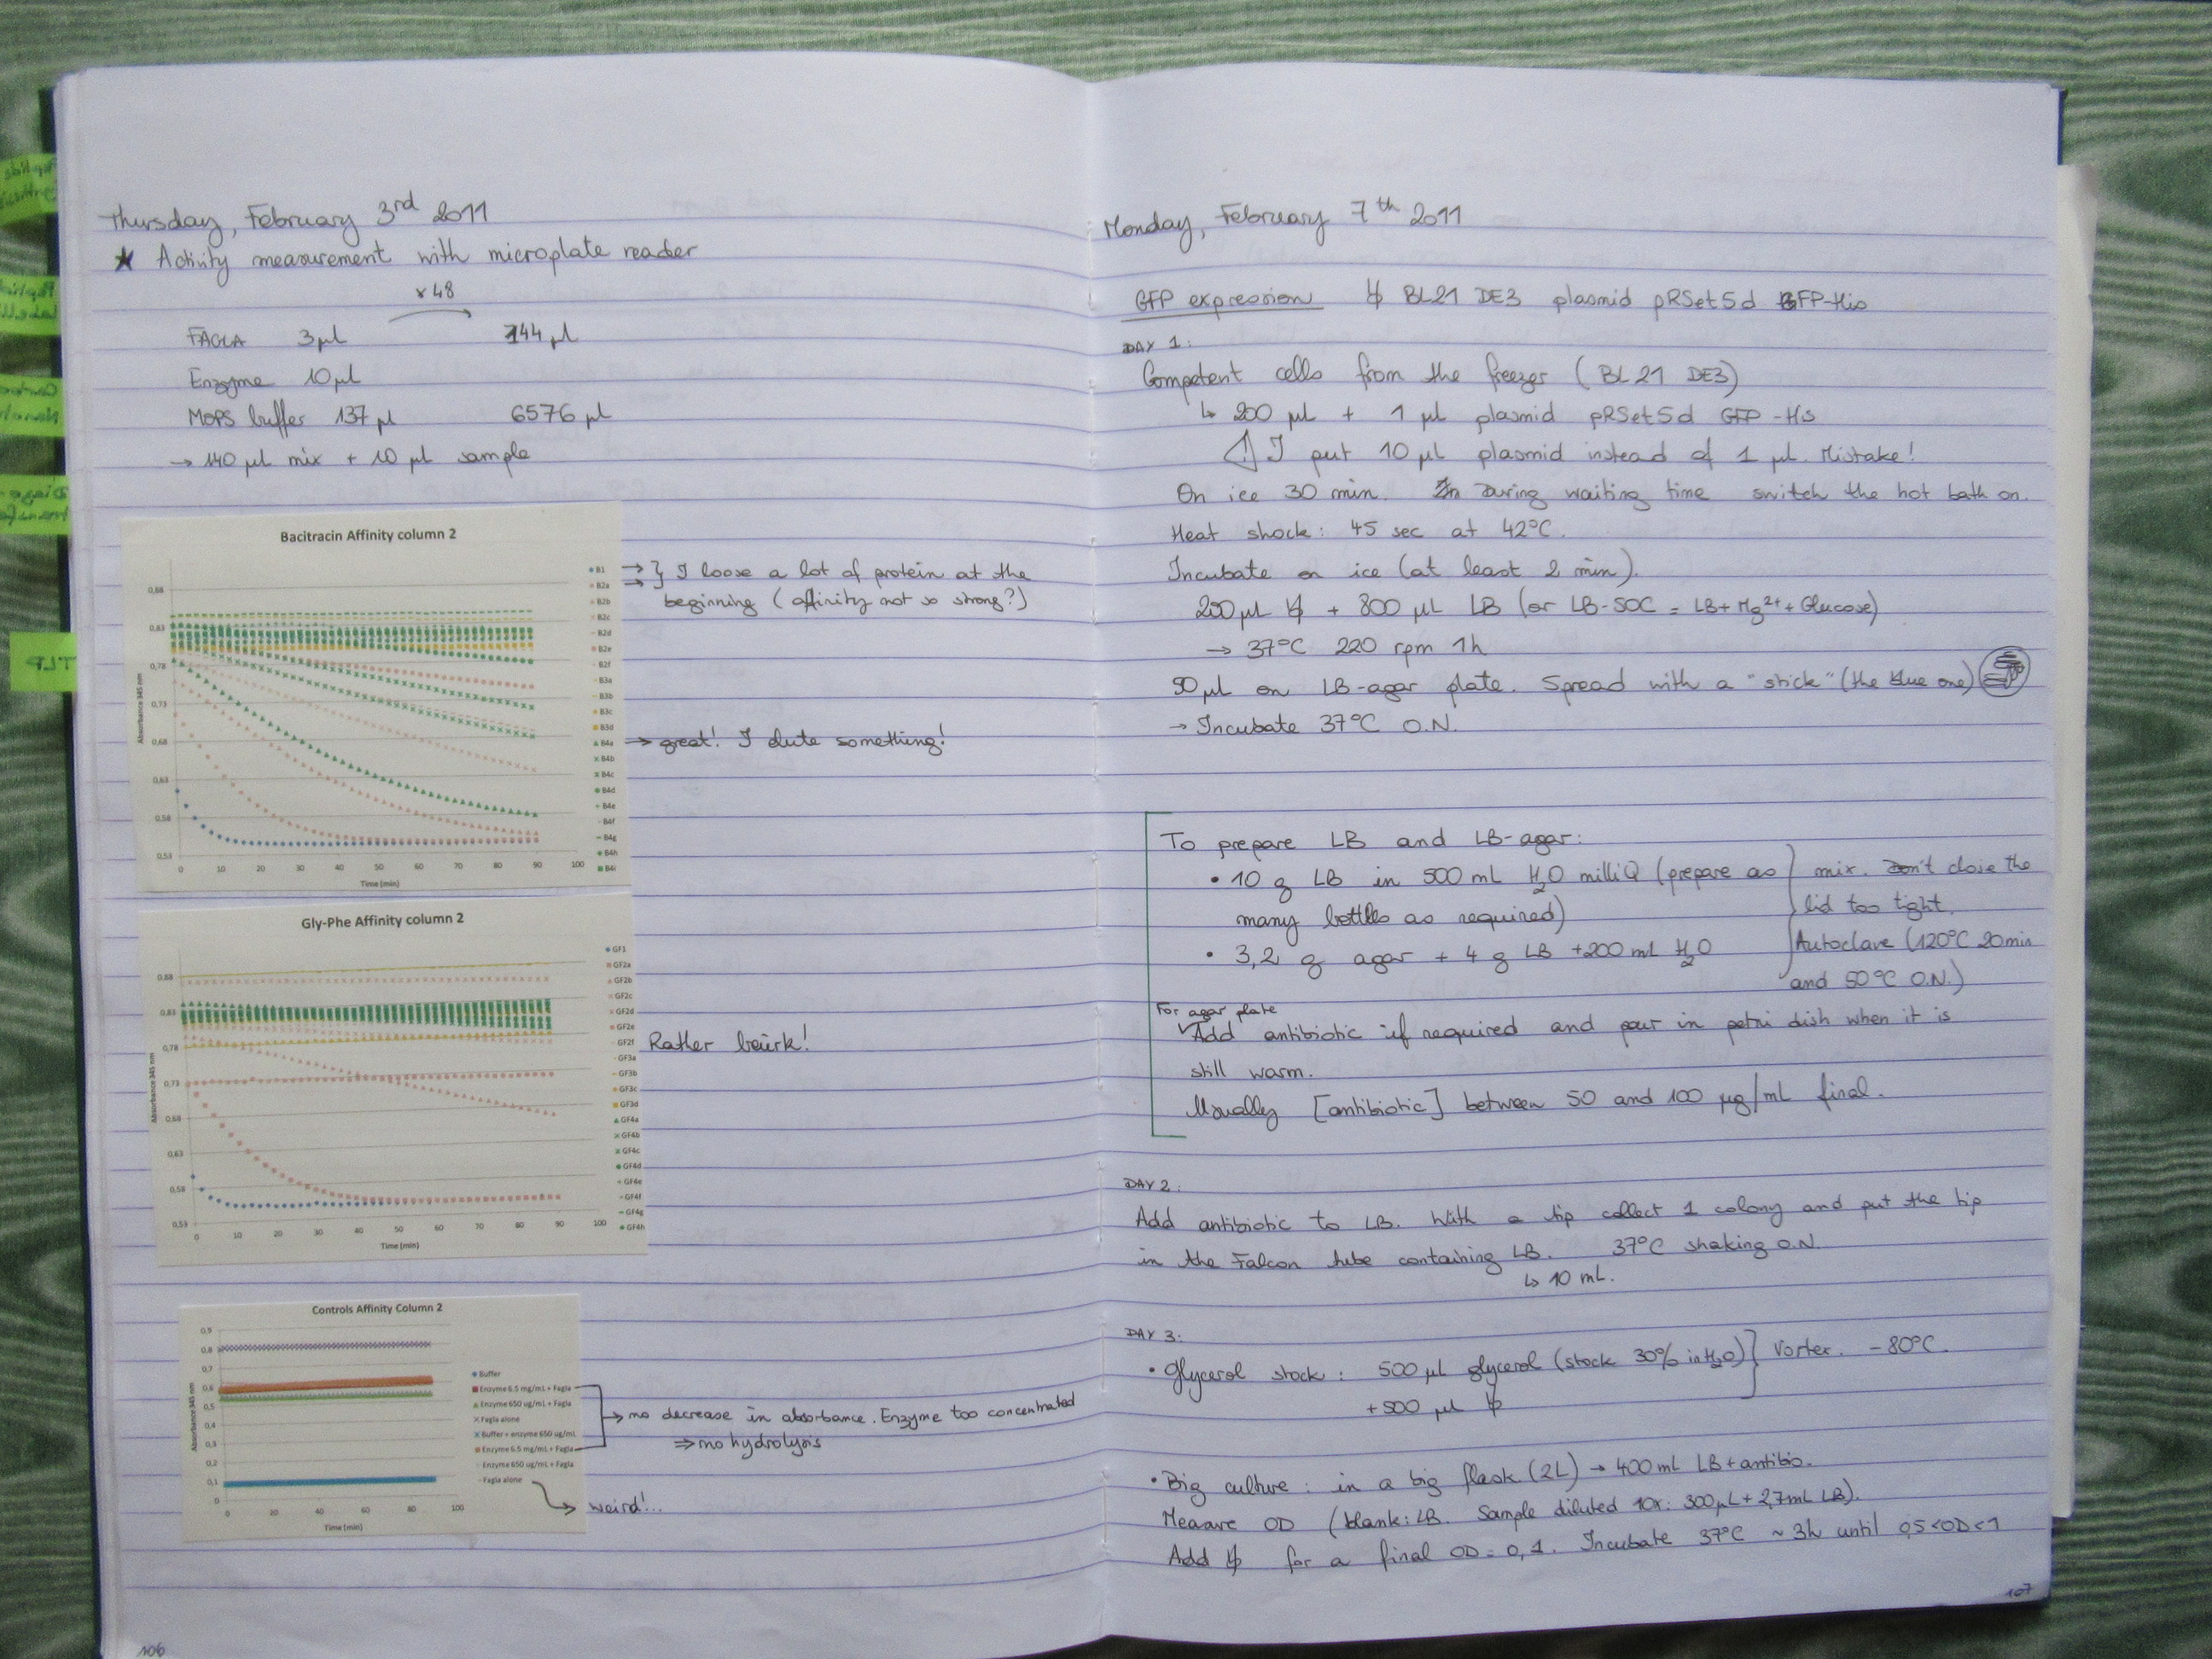 Thursday, February 3rd 2011
★ Activity measurement with microplate reader
x48
FAGLA 3µl 144 µl
Enzyme 10µl
MOPS buffer 137 µl 6576 µl
→ 140 µl mix + 10 µl sample
Bacitracin Affinity column 2
Absorbance 345 nm
0,88
0,83
0,78
0,73
0,68
0,63
0,58
0,53
0 10 20 30 40 50 60 70 80 90 100
Time (min)
B1
B2a
B2b
B2c
B2d
B2e
B2f
B3a
B3b
B3c
B3d
B4a
B4b
B4c
B4d
B4e
B4f
B4g
B4h
B4i
→ } I loose a lot of protein at the
→ beginning (affinity not so strong?)
→ great! I elute something!
Gly-Phe Affinity column 2
Absorbance 345 nm
0,88
0,83
0,78
0,73
0,68
0,63
0,58
0,53
0 10 20 30 40 50 60 70 80 90 100
Time (min)
GF1
GF2a
GF2b
GF2c
GF2d
GF2e
GF2f
GF3a
GF3b
GF3c
GF3d
GF4a
GF4b
GF4c
GF4d
GF4e
GF4f
GF4g
GF4h
Rather beurk!
Controls Affinity Column 2
Absorbance 345 nm
0,9
0,8
0,7
0,6
0,5
0,4
0,3
0,2
0,1
0
0 20 40 60 80 100
Time (min)
Buffer
Enzyme 6.5 mg/mL + Fagla
Enzyme 650 ug/mL + Fagla
Fagla alone
Buffer + enzyme 650 ug/mL
Enzyme 6.5 mg/mL + Fagla
Enzyme 650 ug/mL + Fagla
Fagla alone
→ no decrease in absorbance. Enzyme too concentrated
⇒ no hydrolysis
→ weird!...
106
TLP
Monday, February 7th 2011
GFP expression ↳ BL21 DE3 plasmid pRSet5d GFP-His
DAY 1:
Competent cells from the freezer (BL21 DE3)
↳ 200 µl + 1 µl plasmid pRSet5d GFP-His
⚠ I put 10 µl plasmid instead of 1 µl. Mistake!
On ice 30 min. During waiting time switch the hot bath on.
Heat shock: 45 sec at 42°C.
Incubate on ice (at least 2 min).
200 µl + 800 µL LB (or LB-SOC = LB+Mg2++Glucose)
→ 37°C 220 rpm 1h
50 µl on LB-agar plate. Spread with a "stick" (the blue one)
→ Incubate 37°C O.N.
To prepare LB and LB-agar:
• 10 g LB in 500 mL H2O milliQ (prepare as
many bottles as required)
• 3,2 g agar + 4 g LB +200 mL H2O
mix. Don't close the
lid too tight.
Autoclave (120°C 20min
and 50°C O.N.)
For agar plate
Add antibiotic if required and pour in petri dish when it is
still warm.
Usually [antibiotic] between 50 and 100 µg/mL final.
DAY 2:
Add antibiotic to LB. With a tip collect 1 colony and put the tip
in the Falcon tube containing LB. 37°C shaking O.N.
↳ 10 mL.
DAY 3:
• Glycerol stock: 500 µl glycerol (stock 30% in H2O) } Vortex. -80°C.
+ 500 µl
• Big culture: in a big flask (2L) → 400 mL LB+antibio.
Measure OD (blank: LB. Sample diluted 10x: 300µL+2,7mL LB).
Add for a final OD = 0,1. Incubate 37°C ~3h until 0,5<OD<1
107